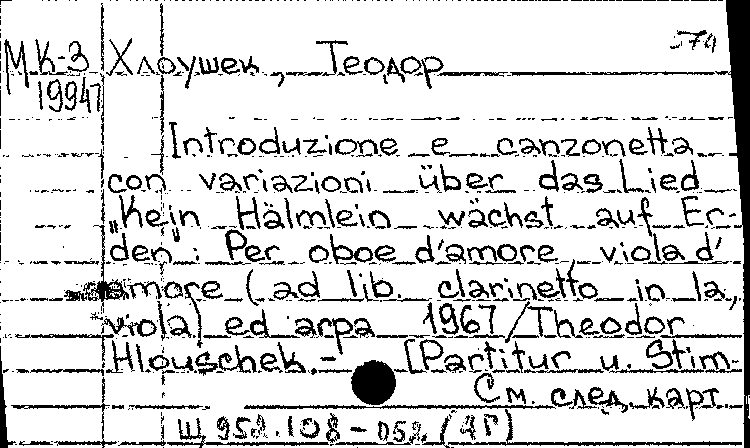 МК-3 Хлоушек, Теодор
19947
Introduzione e canzonetta
con variazioni über das Lied
„Kein Hälmlein wächst auf Er-
den“: Per oboe d'amore, viola d'
amore (ad lib. clarinetto in la,
viola) ed arpa 1967/Theodor
Hlouschek.- [Partitur u. Stim-
См. след. карт.